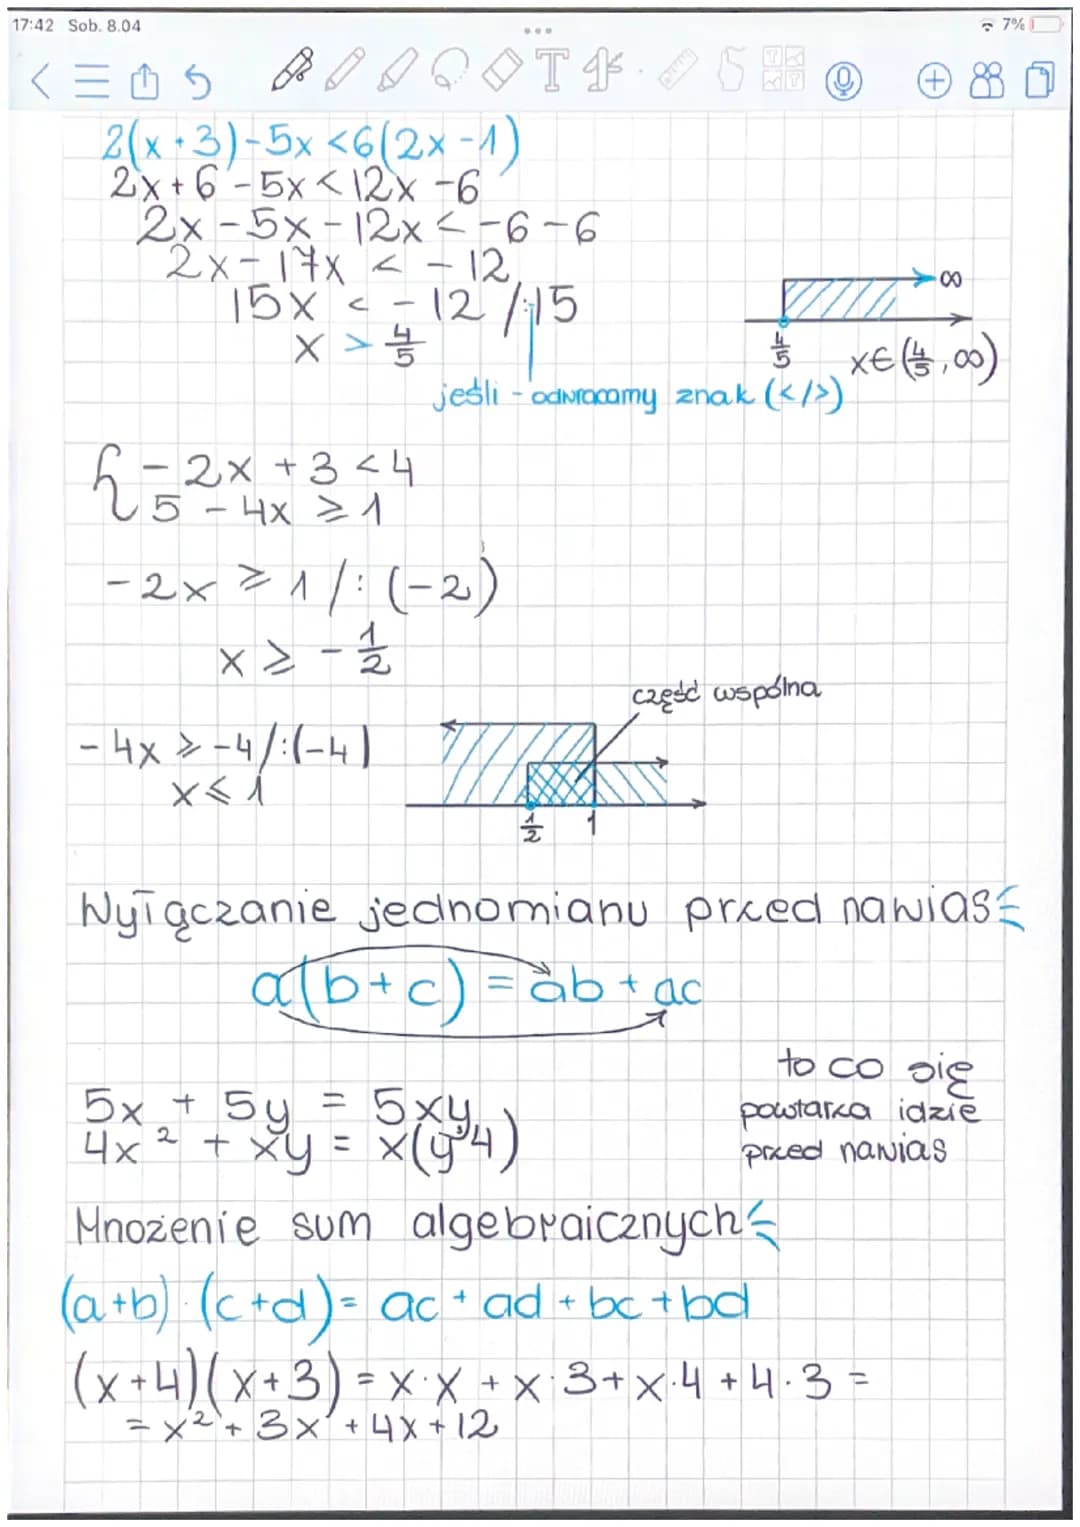 17:42 Sob. 8.04
7%
2(x+3)-5x<6(2x-1)
2x+6-5x<12x-6
2x-5x-12x<-6-6
2x-17x<-12
15x<-12/:15
x>4/5
∞
4/5 x∈(4/5,∞)
jeśli - odwracamy znak (</>)
{-2x+3<4
5-4x≥1
-2x≥1/:(-2)
x≥-1/2
część wspólna
-4x≥-4/:(-4)
x≤1
1/2 1
Wyłączanie jednomianu przed nawias
a(b+c)=ab+ac
to co się
powtarza idzie
przed nawias
5x+5y=5xy
4x²+xy=x(y+4)
Mnożenie sum algebraicznych
(a+b)·(c+d)=ac+ad+bc+bd
(x+4)(x+3)=x·x+x·3+x·4+4·3=
=x²+3x+4x+12